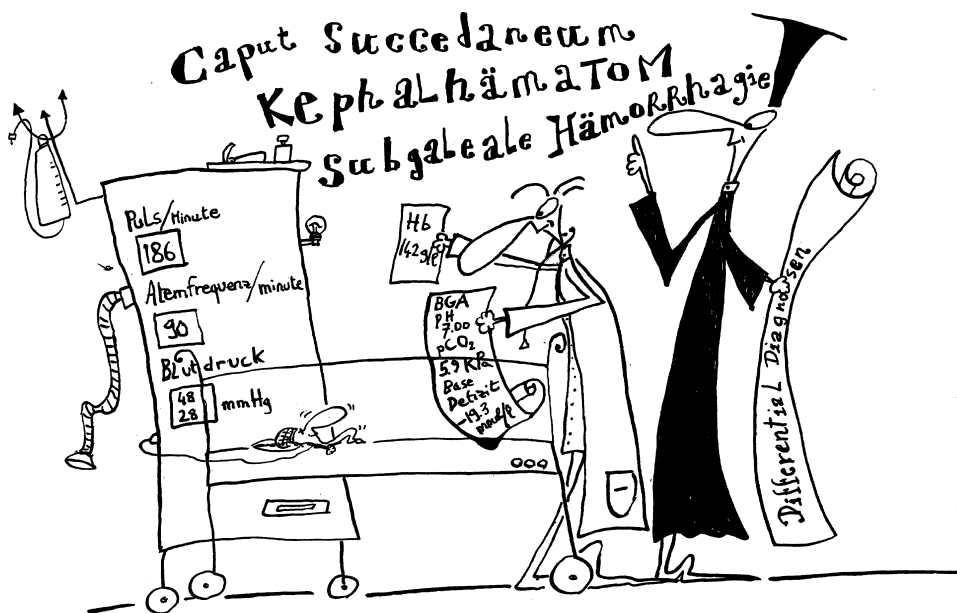 Caput Succedaneum
Kephalhämatom
Subgaleale Hämorrhagie
Puls/Minute
186
Atemfrequenz/minute
90
Blutdruck
48
28
mmHg
Hb
142g/l
BGA
pH
7.00
pCO2
5.9 KPa
Base
Defizit
-19.3
mmol/l
Differential Diagnosen